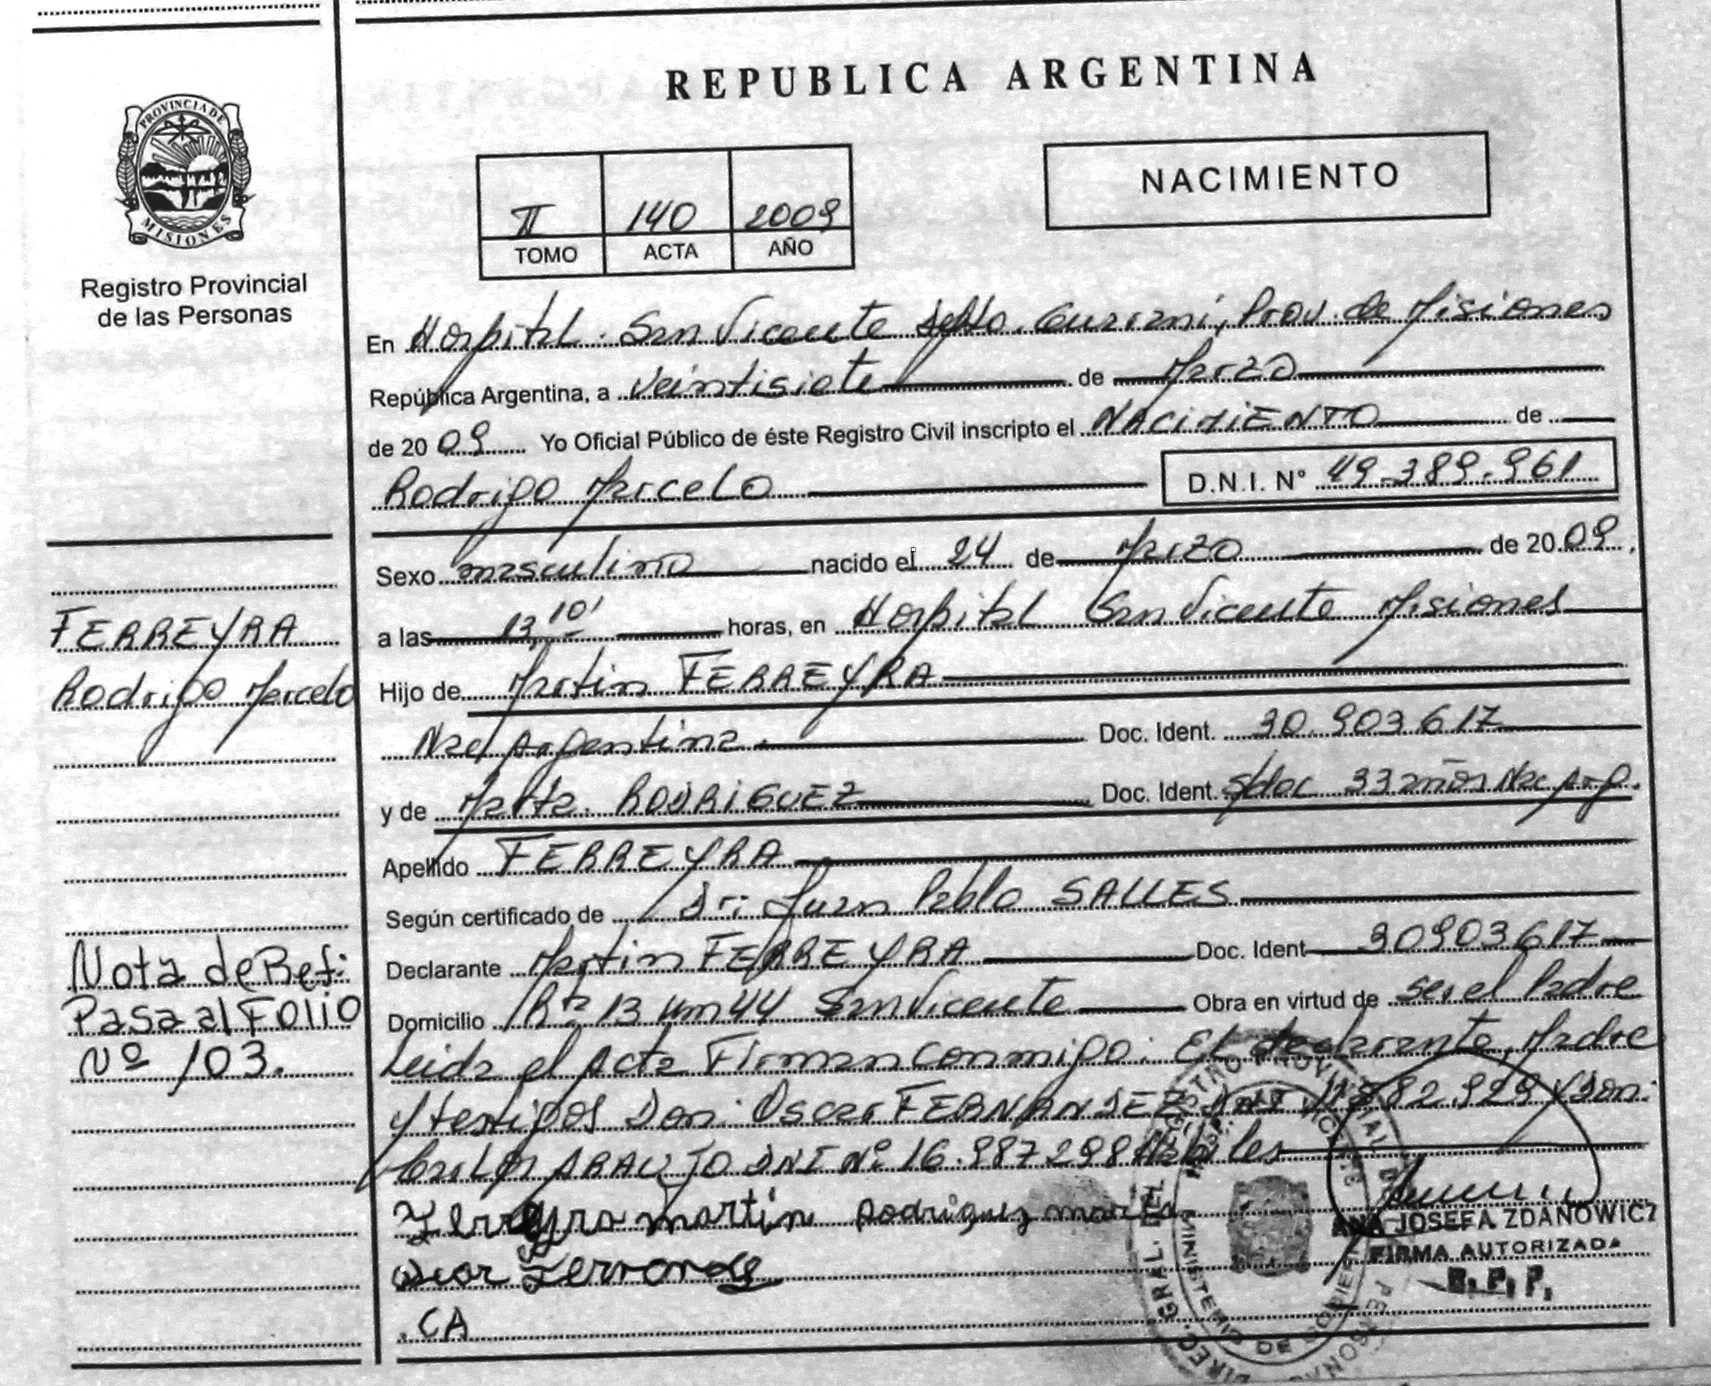 REPUBLICA ARGENTINA
PROVINCIA DE
MISIONES
Registro Provincial
de las Personas
NACIMIENTO
II 140 2009
TOMO ACTA AÑO
En Hospital. San Vicente Dpto. Guarani, Prov. de Misiones
República Argentina, a veintisiete de Marzo
de 2009 Yo Oficial Público de éste Registro Civil inscripto el NACIMIENTO de
Rodrigo Marcelo D.N.I. N° 49.389.961
Sexo masculino nacido el 24 de Marzo de 2009,
a las 13,10' horas, en Hospital San Vicente Misiones
FERREYRA
Rodrigo Marcelo
Hijo de Martin FERREYRA
Nac Argentina. Doc. Ident. 30.903.617
y de Marta. RODRIGUEZ Doc. Ident. S/doc 33 años Nac Arg.
Apellido FERREYRA
Según certificado de Dr: Juan Pablo SALLES
Declarante Martin FERREYRA Doc. Ident 30903617
Domicilio Rta 13 km 44 San Vicente Obra en virtud de ser el Padre
Nota de Ref:
Pasa al Folio
Nº 103.
Leida el Acta Firman conmigo: El declarante, Madre
y testigos Don: Oscar FERNANDEZ DNI y Don:
Carlos ARAUJO DNI Nº 16.987298 Hábiles
Ferreyra martin rodriguez marta
Oscar
CA
ANA JOSEFA ZDANOWICZ
FIRMA AUTORIZADA
R.P.P.
DIREC. GRAL. DEL REGISTRO PROVINCIAL DE
MINISTERIO DE GOBIERNO